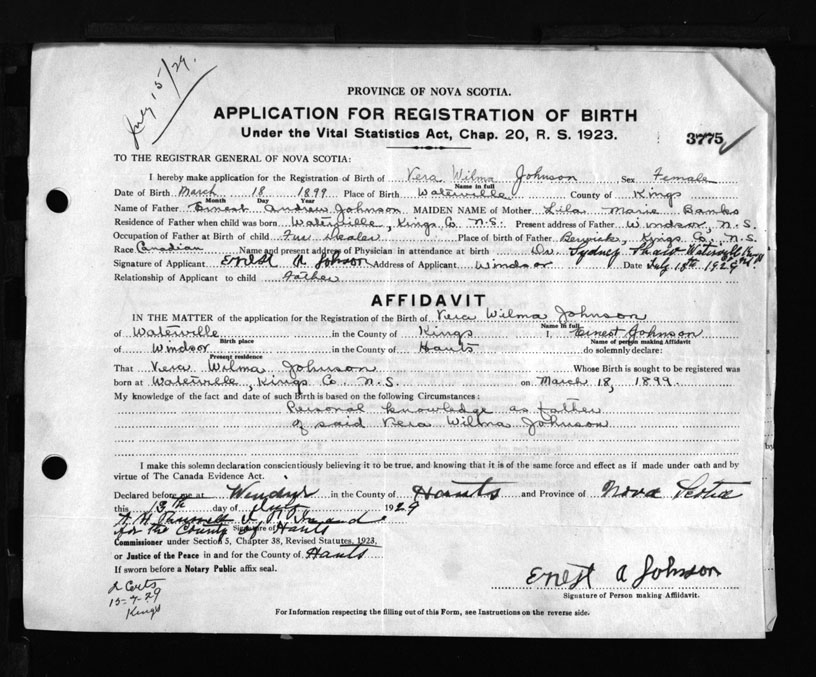 July 15/29.
PROVINCE OF NOVA SCOTIA.
APPLICATION FOR REGISTRATION OF BIRTH
Under the Vital Statistics Act, Chap. 20, R. S. 1923.
3775
TO THE REGISTRAR GENERAL OF NOVA SCOTIA:
I hereby make application for the Registration of Birth of Vera Wilma Johnson Sex Female
Name in full
Date of Birth March 18 1899 Place of Birth Waterville County of Kings
Month Day Year
Name of Father Ernest Andrew Johnson MAIDEN NAME of Mother Lila Marie Banks
Residence of Father when child was born Waterville, Kings Co. N.S. Present address of Father Windsor, N.S.
Occupation of Father at Birth of child Fur Dealer Place of birth of Father Berwick, Kings Co., N.S.
Race Canadian Name and present address of Physician in attendance at birth Dr. Sydney Waterville
Signature of Applicant Ernest A Johson Address of Applicant Windsor Date July 13th 1929
Relationship of Applicant to child Father
AFFIDAVIT
IN THE MATTER of the application for the Registration of the Birth of Vera Wilma Johnson
Name in full
of Waterville in the County of Kings I, Ernest Johnson
Birth place Name of person making Affidavit
of Windsor in the County of Hants do solemnly declare:
Present residence
That Vera Wilma Johnson Whose Birth is sought to be registered was
born at Waterville, Kings Co. N.S. on March 18, 1899.
My knowledge of the fact and date of such Birth is based on the following Circumstances:
Personal knowledge as father
of said Vera Wilma Johnson
I make this solemn declaration conscientiously believing it to be true, and knowing that it is of the same force and effect as if made under oath and by
virtue of The Canada Evidence Act.
Declared before me at Windsor in the County of Hants and Province of Nova Scotia
this 13th day of July 1929
Signature of
for the County of Hants
Commissioner under Section 5, Chapter 38, Revised Statutes, 1923,
or Justice of the Peace in and for the County of Hants
If sworn before a Notary Public affix seal.
Ernest A Johnson
Signature of Person making Affidavit.
2 Certs
15-7-29
Kings
For Information respecting the filling out of this Form, see Instructions on the reverse side.